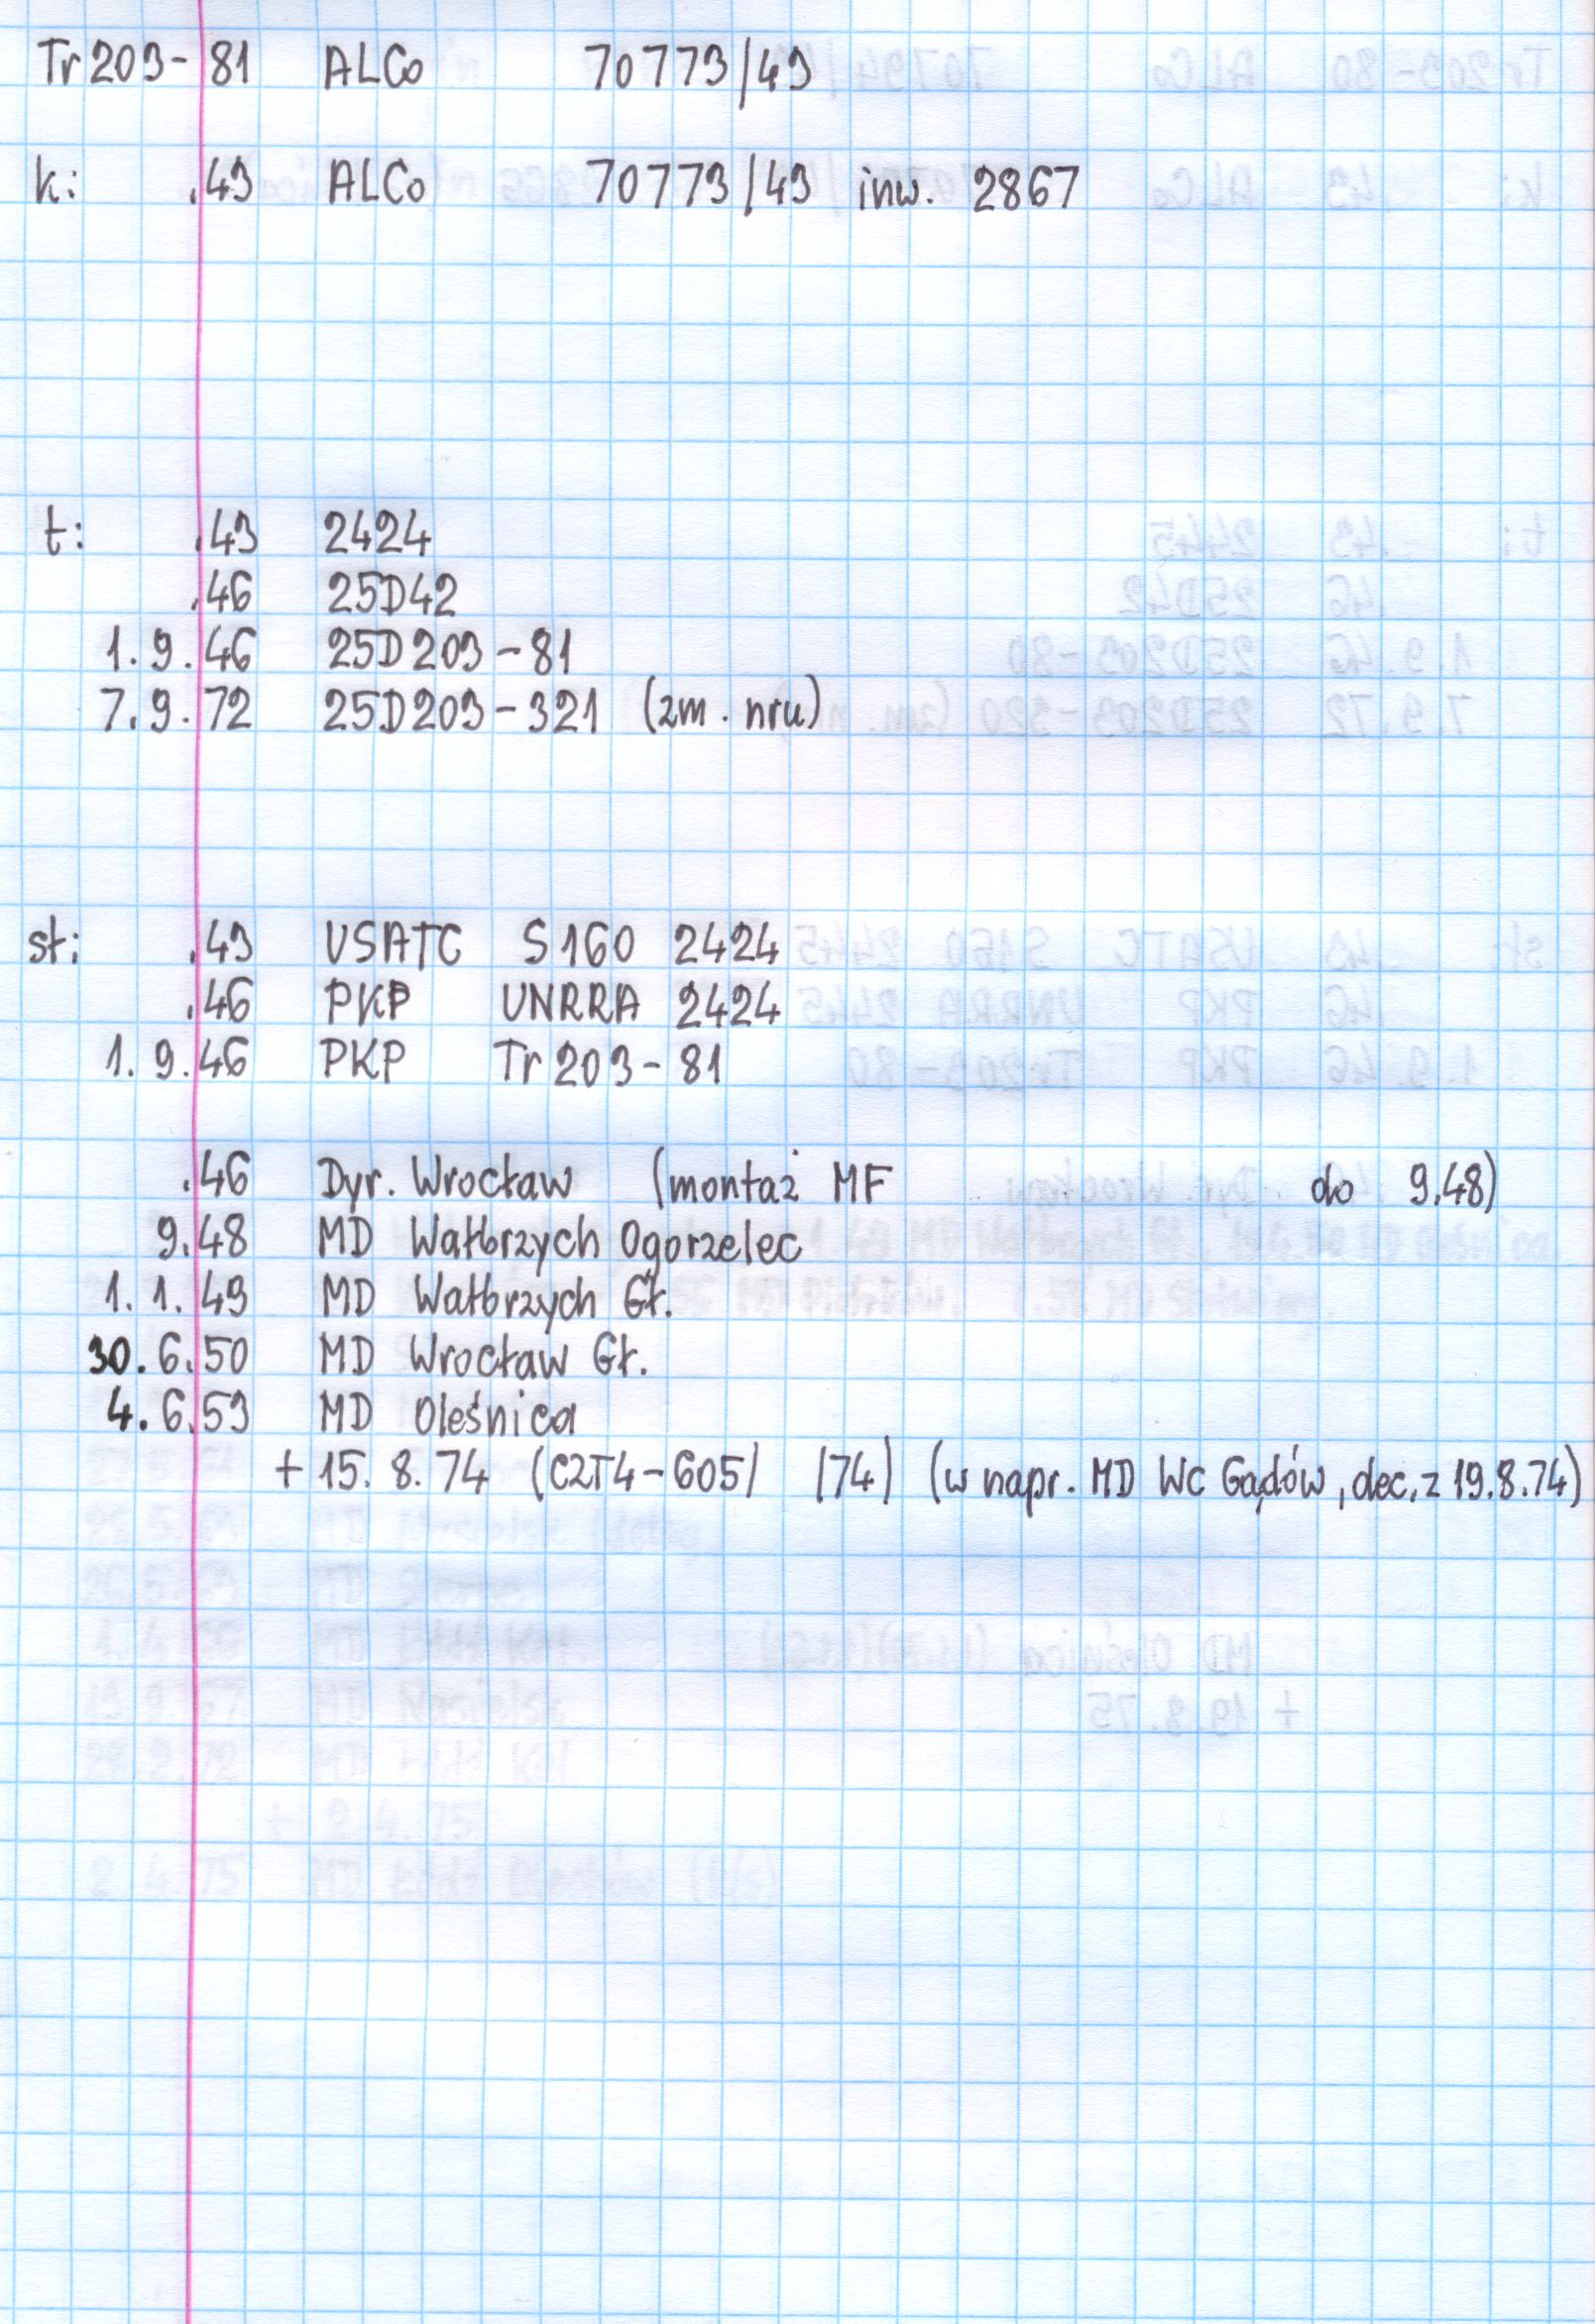 Tr203-81 ALCo 70773/43
k: .43 ALCo 70773/43 inw. 2867
t: .43 2424
.46 25D42
1.9.46 25D203-81
7.9.72 25D203-321 (zm. nru)
st: .43 USATC S160 2424
.46 PKP UNRRA 2424
1.9.46 PKP Tr203-81
.46 Dyr. Wrocław (montaż MF do 9.48)
9.48 MD Wałbrzych Ogorzelec
1.1.49 MD Wałbrzych Gł.
30.6.50 MD Wrocław Gł.
4.6.53 MD Oleśnica
+ 15.8.74 (C2T4-605/ /74) (w napr. MD Wc Gądów, dec. z 19.8.74)